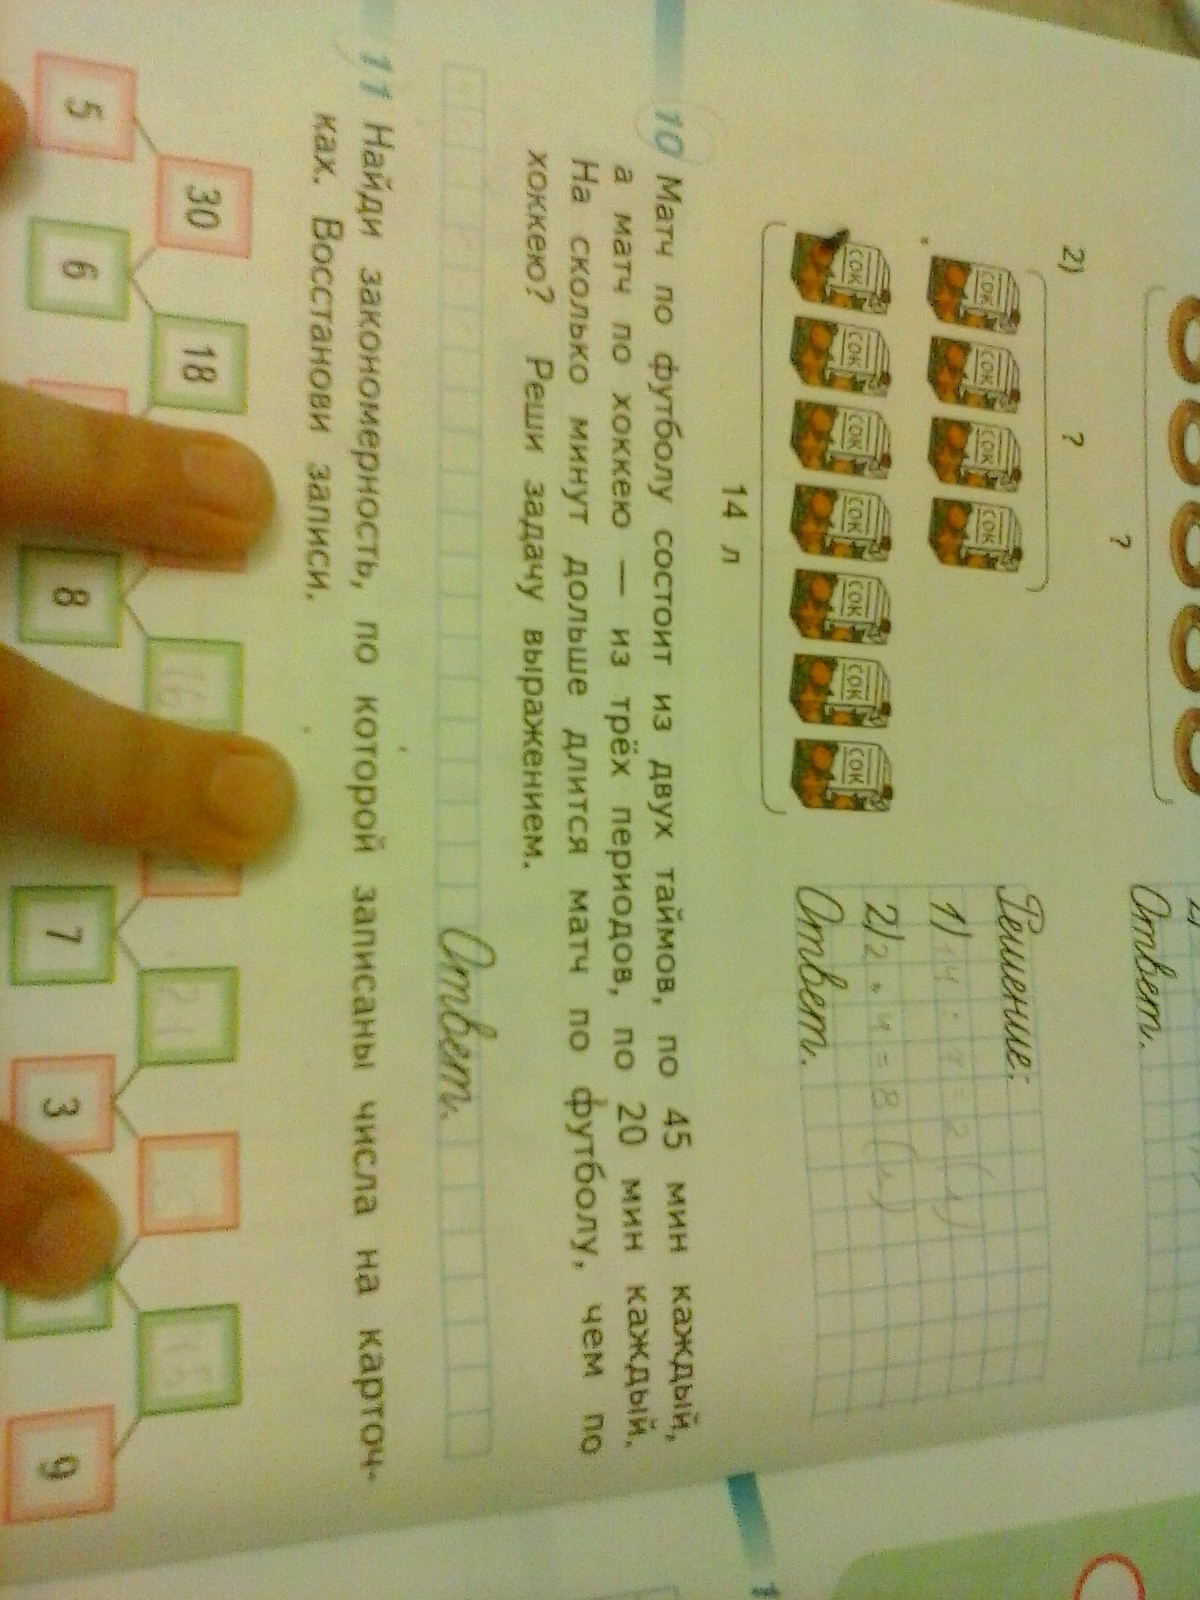 ?
2)
?
СОК СОК СОК СОК
СОК СОК СОК СОК СОК СОК СОК
14 л
Ответ.
Решение:
1) 14 : 7 = 2 (л)
2) 2 · 4 = 8 (л)
Ответ.
10 Матч по футболу состоит из двух таймов, по 45 мин каждый,
а матч по хоккею — из трёх периодов, по 20 мин каждый.
На сколько минут дольше длится матч по футболу, чем по
хоккею? Реши задачу выражением.
Ответ.
11 Найди закономерность, по которой записаны числа на карточ-
ках. Восстанови записи.
30 18 16 21 15
5 6 8 7 3 9
1